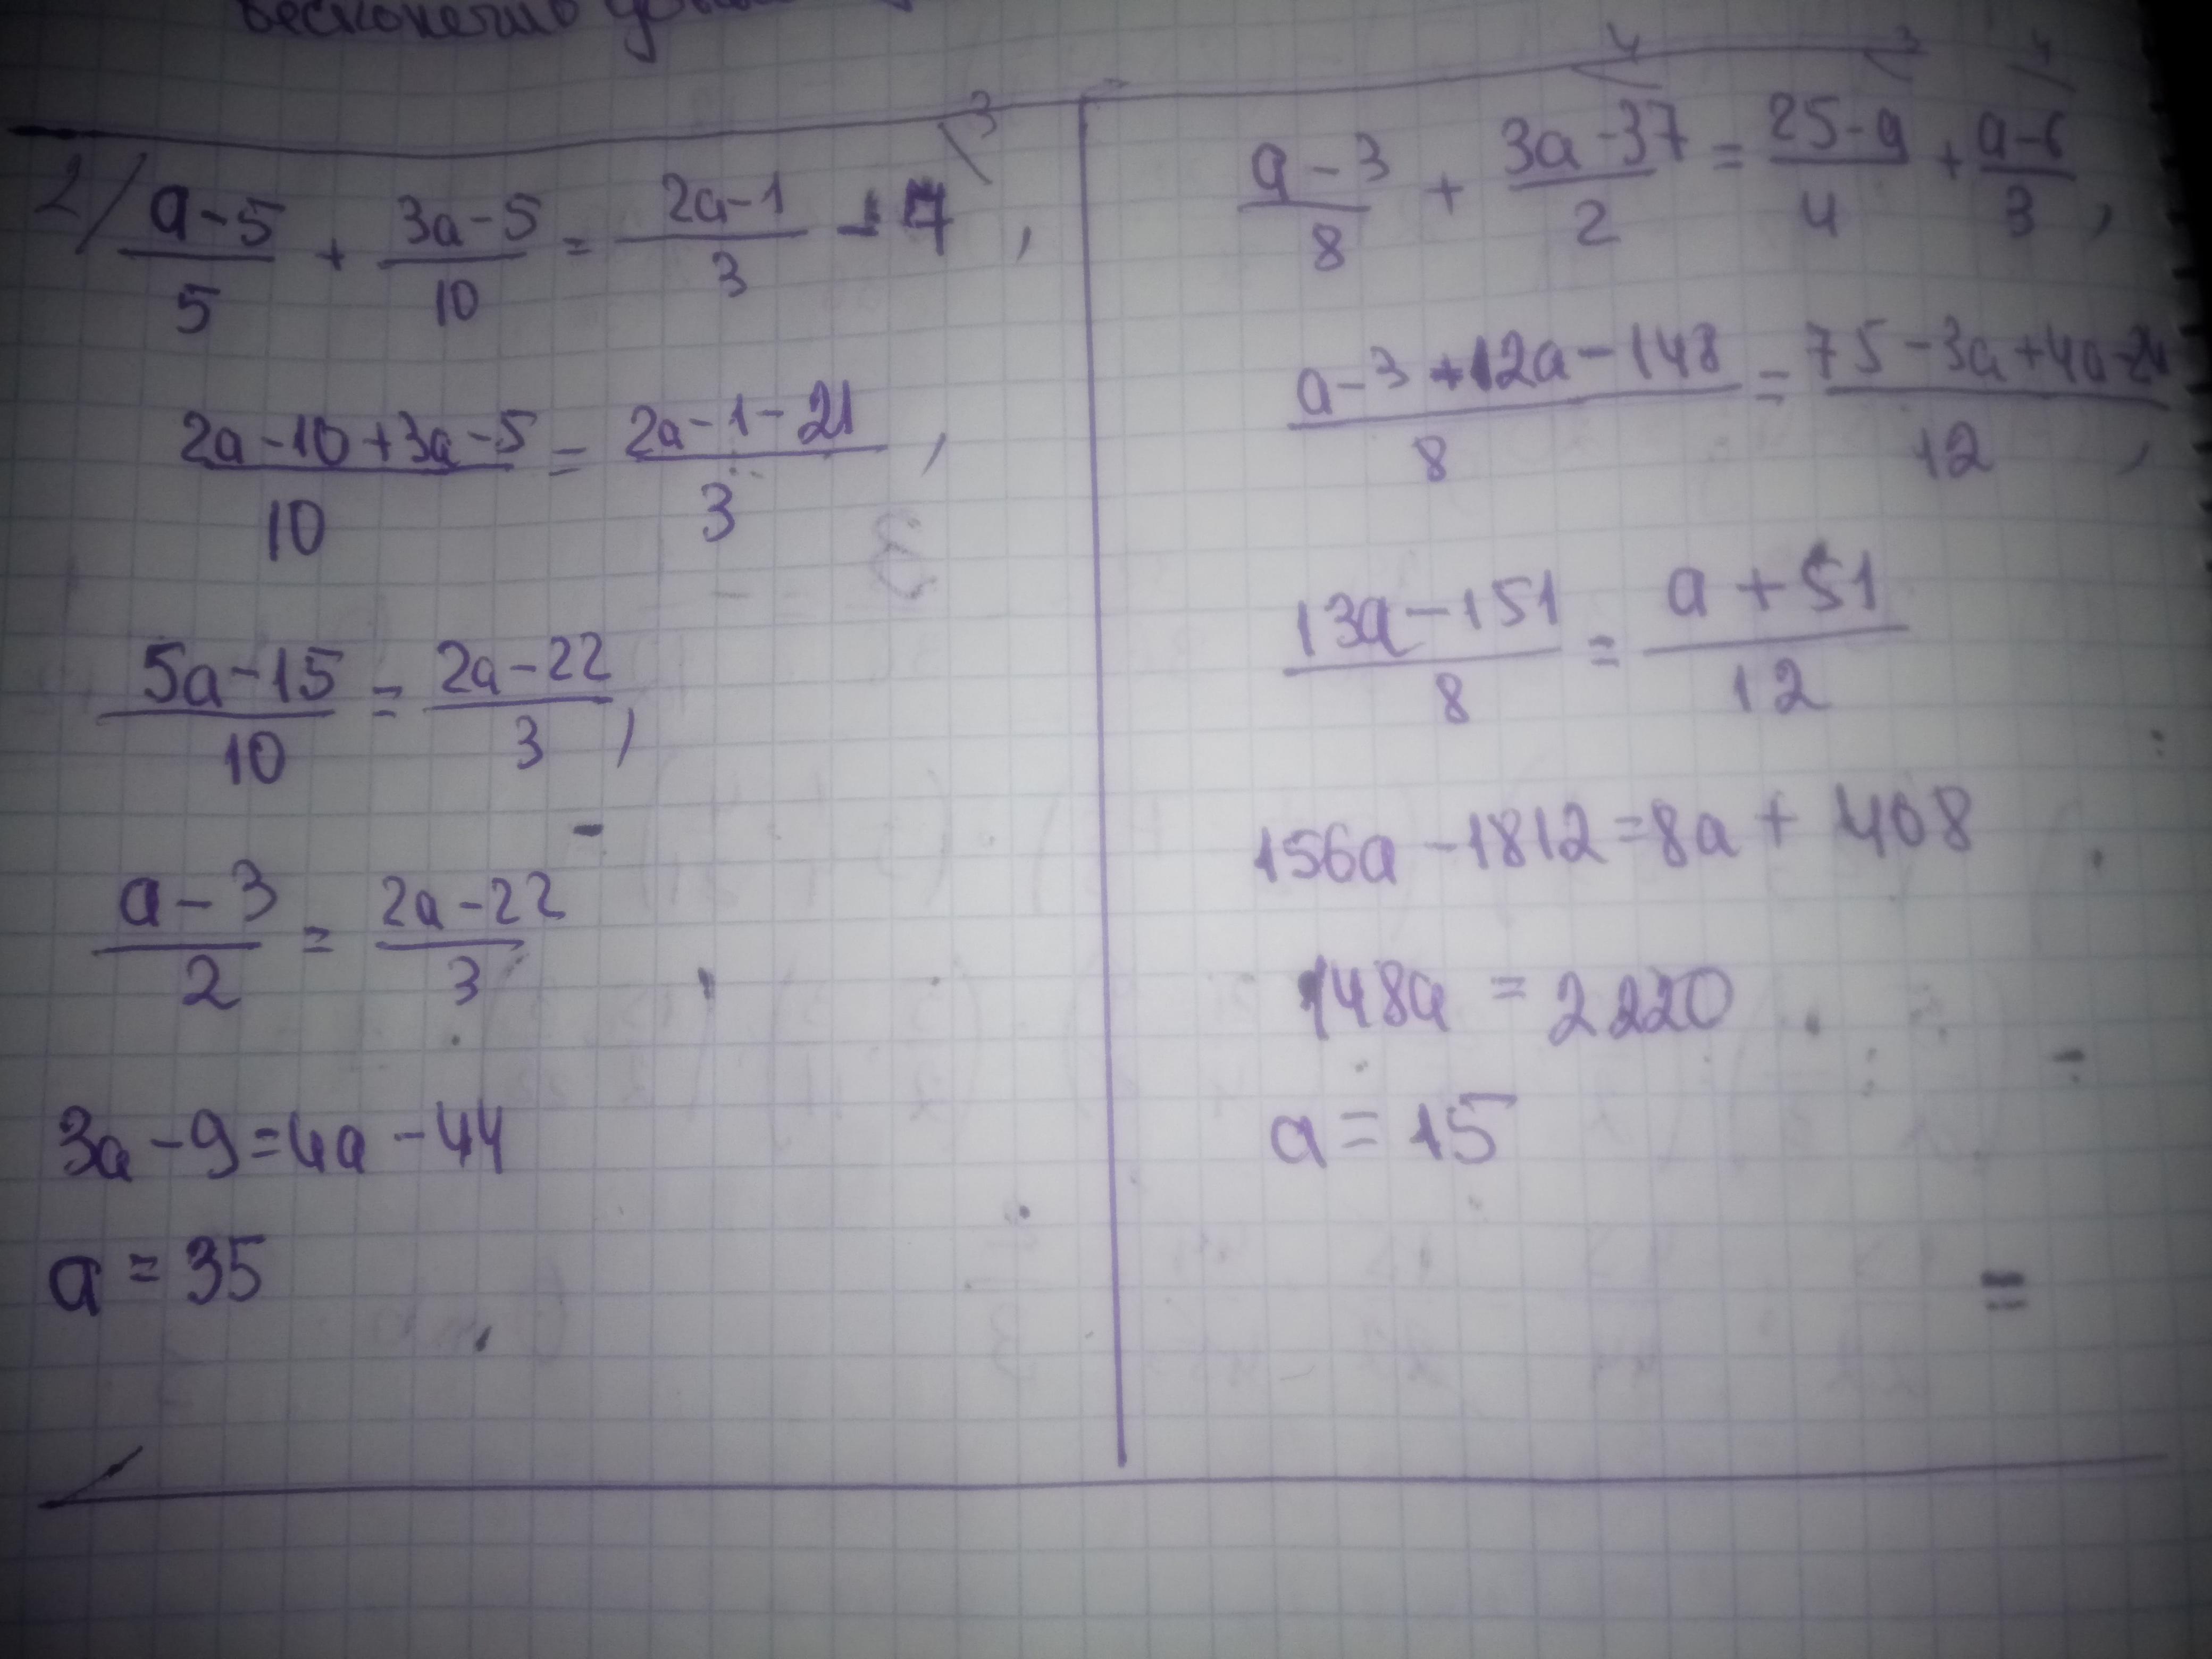 бесконечно
2/ (a-5)/5 + (3a-5)/10 = (2a-1)/3 - 7 \3,
(2a-10+3a-5)/10 = (2a-1-21)/3,
(5a-15)/10 = (2a-22)/3,
(a-3)/2 = (2a-22)/3
3a-9=4a-44
a=35
(a-3)/8 + (3a-37)/2 \4 = (25-a)/4 \3 + (a-6)/3 \4,
(a-3+12a-148)/8 = (75-3a+4a-24)/12,
(13a-151)/8 = (a+51)/12
156a-1812=8a+408
148a=2220
a=15